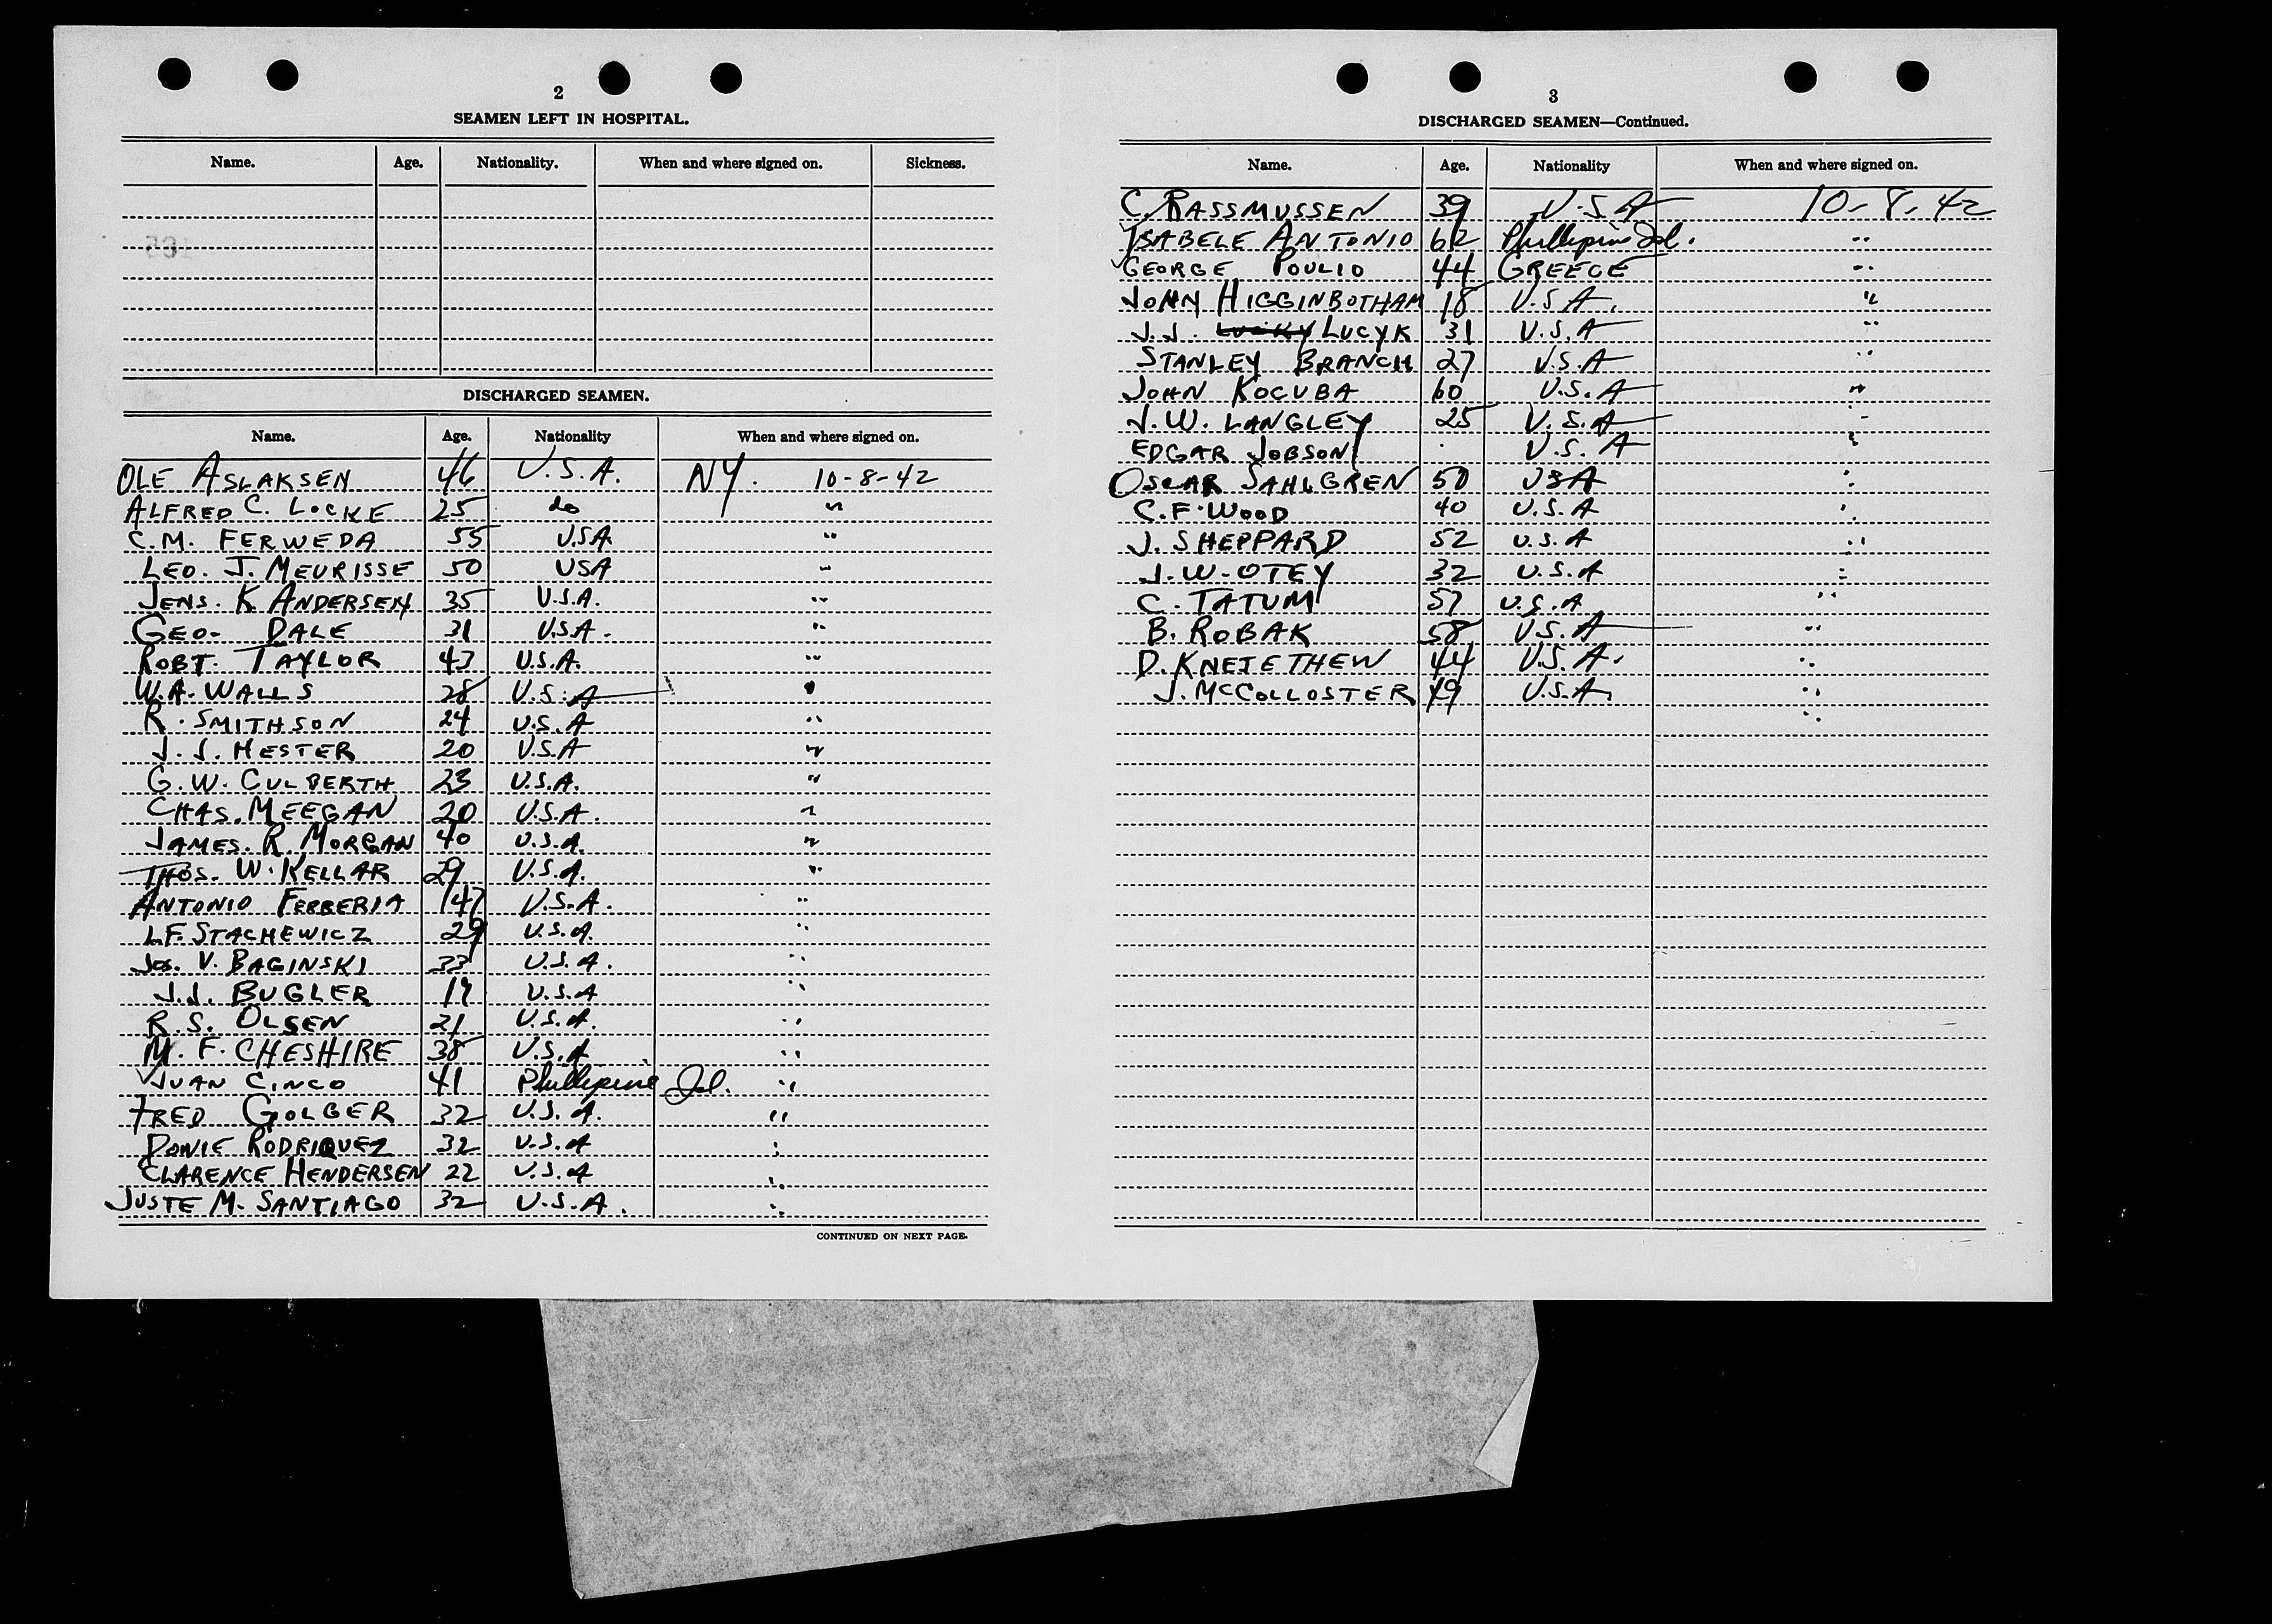 2
SEAMEN LEFT IN HOSPITAL.
Name. Age. Nationality. When and where signed on. Sickness.
DISCHARGED SEAMEN.
Name. Age. Nationality When and where signed on.
OLE ASLAKSEN 46 U.S.A. NY. 10-8-42
ALFRED C. LOCKE 25 do "
C.M. FERWEDA 55 U.S.A. "
LEO. J. MEURISSE 50 USA "
JENS. K ANDERSEN 35 U.S.A. "
GEO. DALE 31 U.S.A. "
ROBT. TAYLOR 43 U.S.A. "
W.A. WALLS 28 U.S.A "
R. SMITHSON 24 U.S.A "
J.J. HESTER 20 U.S.A "
G.W. CULBERTH 23 U.S.A. "
CHAS. MEEGAN 20 U.S.A. "
JAMES. R. MORGAN 40 U.S.A. "
THOS. W. KELLAR 29 U.S.A. "
ANTONIO FERBERIA 47 U.S.A. "
L.F. STACHEWICZ 29 U.S.A. "
JOS. V. BAGINSKI 33 U.S.A. "
J.J. BUGLER U.S.A "
R.S. OLSEN 21 U.S.A. "
M. F. CHESHIRE 38 U.S.A "
JUAN CINCO 41 Phillipine Isl. "
FRED GOLBER 32 U.S.A. "
DONIE RODRIQUEZ 32 U.S.A "
CLARENCE HENDERSEN 22 U.S.A "
JUSTE M. SANTIAGO 32 U.S.A. "
CONTINUED ON NEXT PAGE.
3
DISCHARGED SEAMEN—Continued.
Name. Age. Nationality When and where signed on.
C. RASSMUSSEN 39 U.S.A 10-8-42
ISABELE ANTONIO 62 Phillipine Isl. "
GEORGE POULIO 44 GREECE "
JOHN HIGGINBOTHAM 18 U.S.A. "
J.J. LUCYK 31 U.S.A "
STANLEY BRANCH 27 U.S.A "
JOHN KOCUBA 60 U.S.A "
J.W. LANGLEY 25 U.S.A "
EDGAR JOBSON U.S.A "
OSCAR SAHLGREN 50 USA "
C.F. WOOD 40 U.S.A "
J. SHEPPARD 52 U.S.A "
J.W. OTEY 32 U.S.A "
C. TATUM 57 U.S.A "
B. ROBAK 58 U.S.A "
D. KNEIETHEW 44 U.S.A. "
J. MCCOLLOSTER 49 U.S.A. "
"